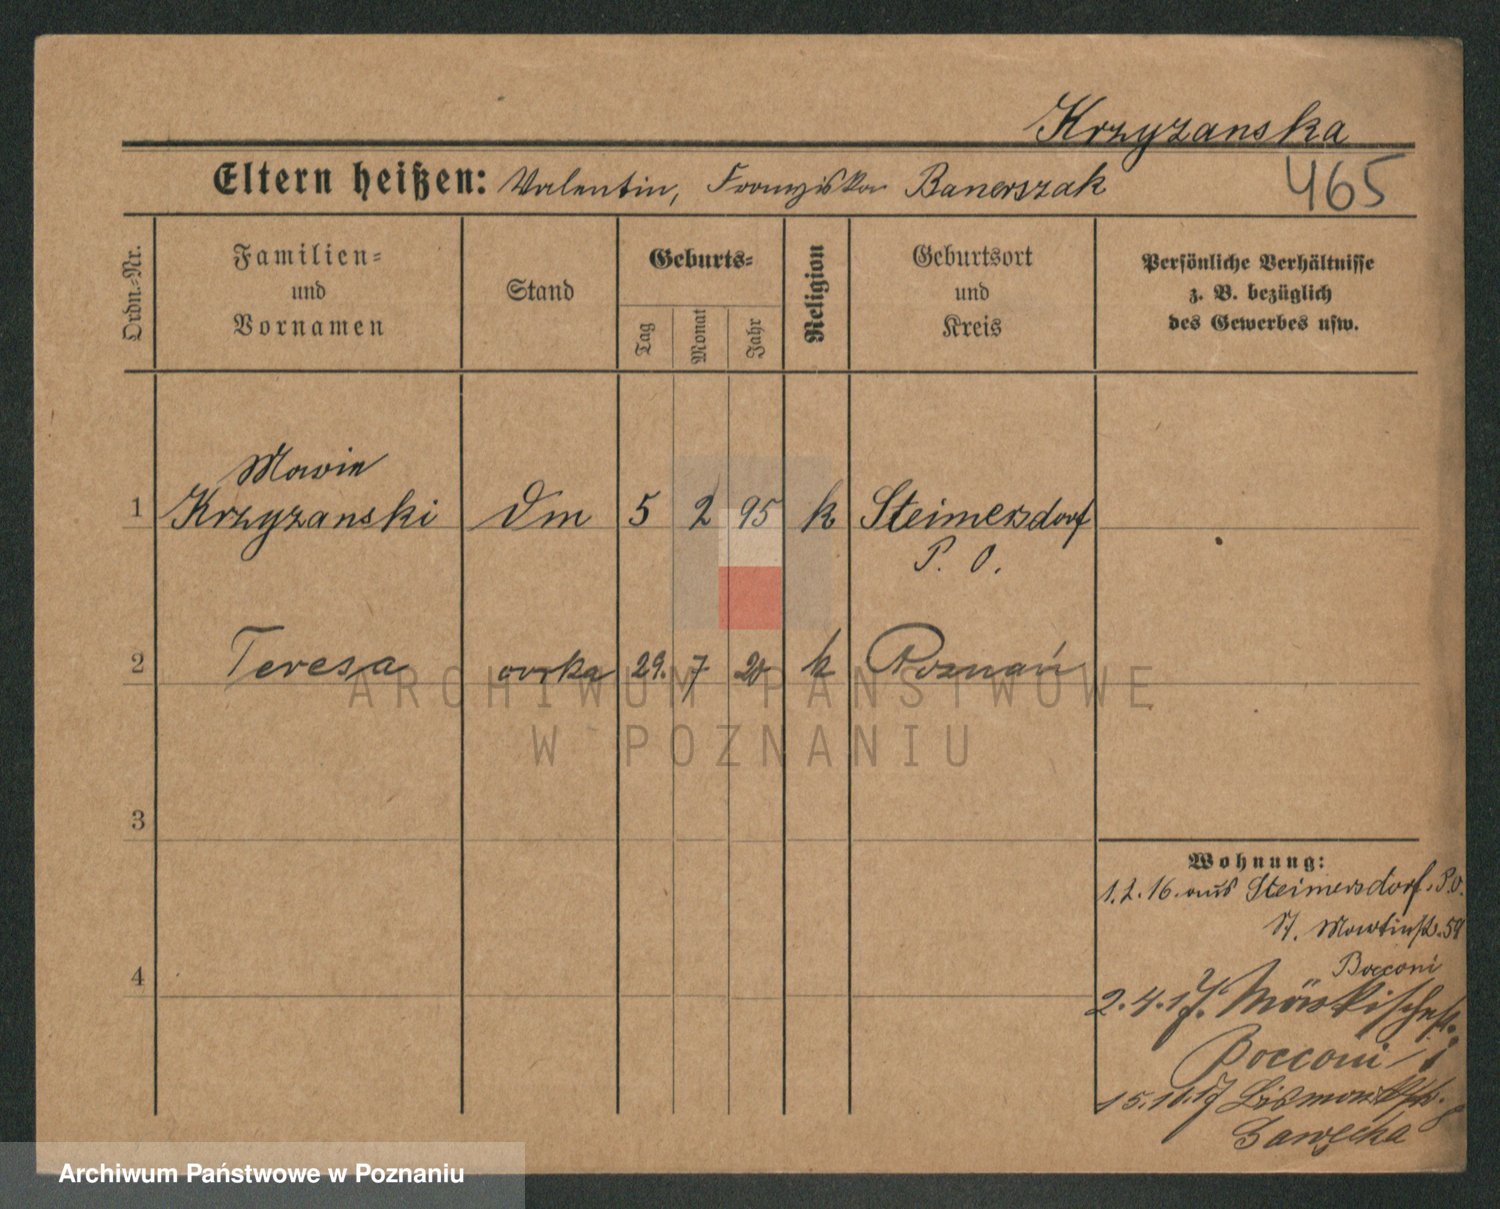 Krzyzanska
465
Eltern heißen: Valentin, Franziska Banerszak
Ordn.-Nr.
Familien-
und
Vornamen
Stand
Geburts-
Tag
Monat
Jahr
Religion
Geburtsort
und
Kreis
Persönliche Verhältnisse
z. B. bezüglich
des Gewerbes usw.
Marie
1 Krzyzanski Dm 5 2 95 k Steimersdorf
P. O.
2 Teresa córka 29. 7 20 k Poznań
3
4
Wohnung:
1.2.16. aus Steimersdorf. P.O.
St. Martinstr. 59
Bocconi
2.4.17. Märkischestr.
Bocconi
15.11.17 Bismarckstr.
Gawęcka
ARCHIWUM PAŃSTWOWE
W POZNANIU
Archiwum Państwowe w Poznaniu